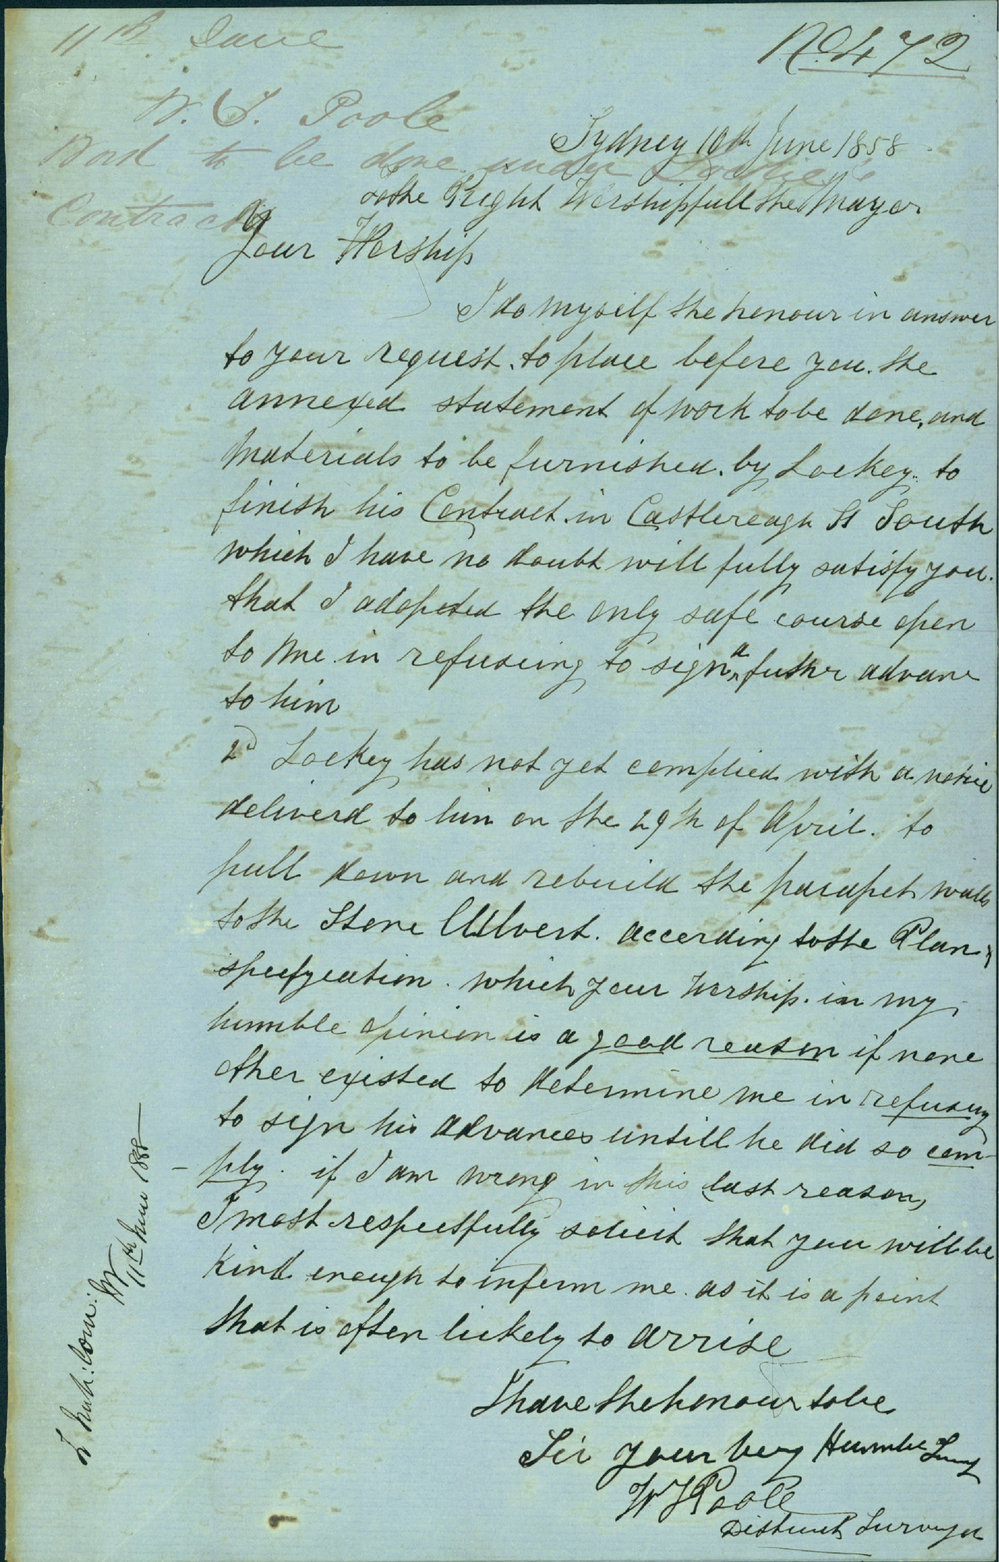 11th June
No. 472
W. J. Poole
Work to be done under Lockie's
Contract
Sydney 10th June 1858
To the Right Worshipfull the Mayor
Your Worship
I do myself the honour in answer
to your request. to place before you. the
annexed statement of work to be done, and
Materials to be furnished. by Lockey. to
finish his Contract in Castlereagh St South
which I have no doubt will fully satisfy you.
that I adopeted the only safe course open
to me in refuseing to sign a futher advance
to him
2d Lockey has not yet complied with a notice
deliverd to him on the 29th of April. to
pull down and rebuild the parapet walls
to the Stone Culvert. according to the Plan &
specifycation. which your Worship. in my
humble opinion is a good reason if none
other existed to determine me in refuseing
to sign his advances untill he did so com-
ply. if I am wrong in this last reason,
I most respectfully solicit that you will be
kind enough to inform me. as it is a point
that is often likely to arrise
I have the honour to be
Sir your very Humble Servt
W J Poole
District Surveyor
11th June 1858